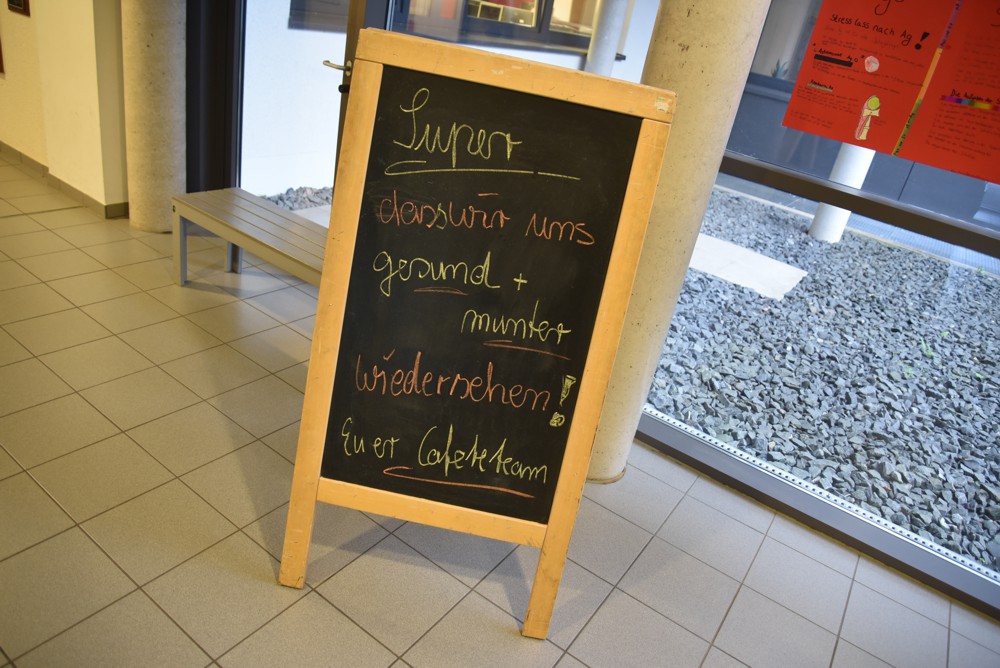 Super
dass wir uns
gesund +
munter
wiedersehen!
Euer Cafeteteam
Stress lass nach Ag!